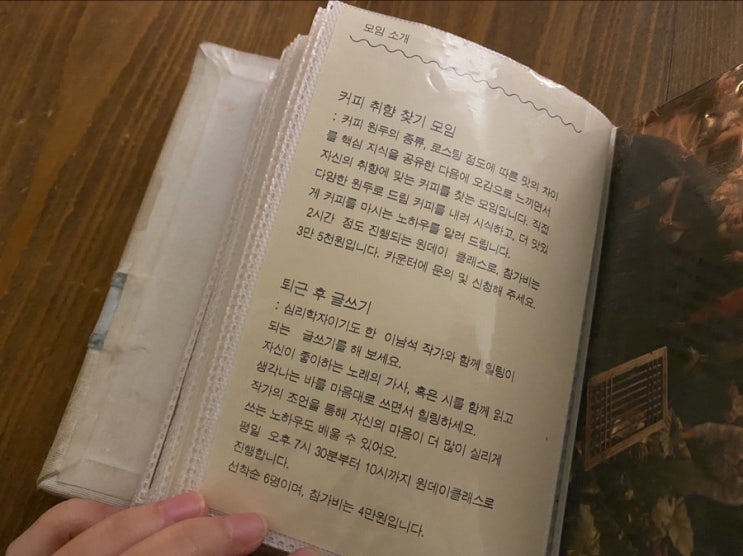 모임 소개
커피 취향 찾기 모임
: 커피 원두의 종류, 로스팅 정도에 따른 맛의 차이
를 핵심 지식을 공유한 다음에 오감으로 느끼면서
자신의 취향에 맞는 커피를 찾는 모임입니다. 직접
다양한 원두로 드립 커피를 내려 시식하고, 더 맛있
게 커피를 마시는 노하우를 알려 드립니다.
2시간 정도 진행되는 원데이 클래스로, 참가비는
3만 5천원입니다. 카운터에 문의 및 신청해 주세요.
퇴근 후 글쓰기
: 심리학자이기도 한 이남석 작가와 함께 힐링이
되는 글쓰기를 해 보세요.
자신이 좋아하는 노래의 가사, 혹은 시를 함께 읽고
생각나는 바를 마음대로 쓰면서 힐링하세요.
작가의 조언을 통해 자신의 마음이 더 많이 실리게
쓰는 노하우도 배울 수 있어요.
평일 오후 7시 30분부터 10시까지 원데이클래스로
진행합니다.
선착순 6명이며, 참가비는 4만원입니다.